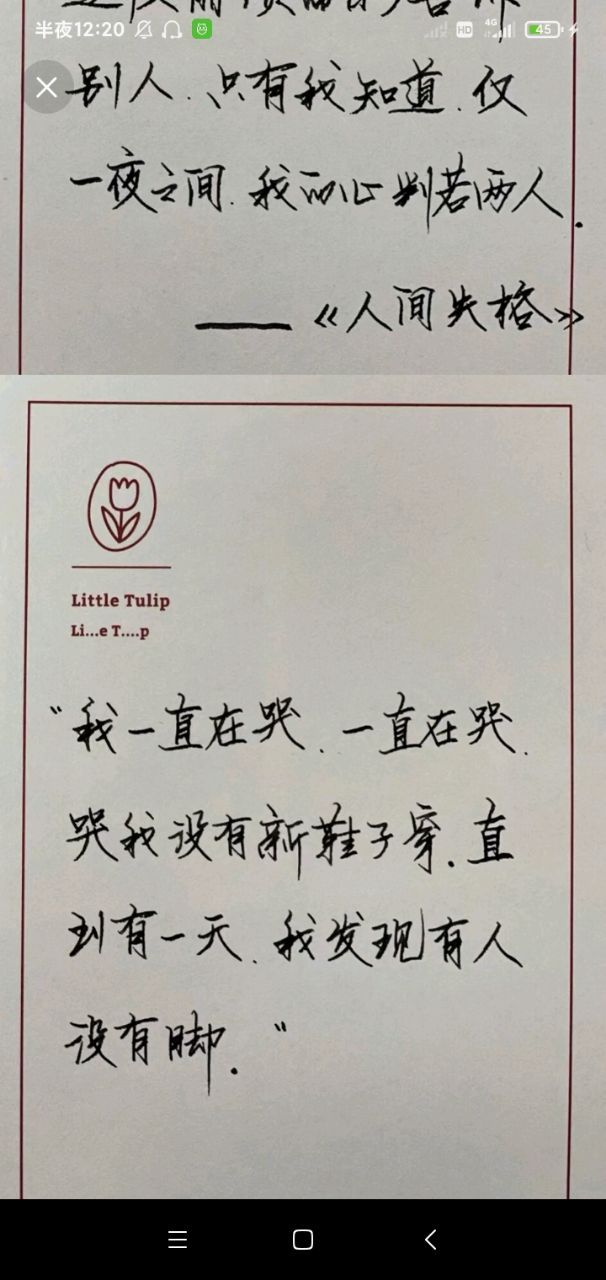 半夜12:20 HD 4G 45
别人.只有我知道.仅
一夜之间.我的心判若两人.
——《人间失格》
Little Tulip
Li...e T....p
“我一直在哭.一直在哭.
哭我没有新鞋子穿.直
到有一天.我发现有人
没有脚.”